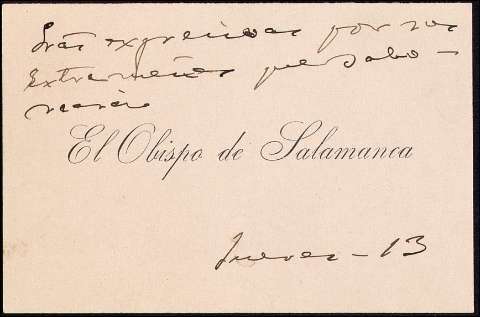 Gras expresivas por sus
Extremeñas que sabo-
reará
El Obispo de Salamanca
Jueves - 13